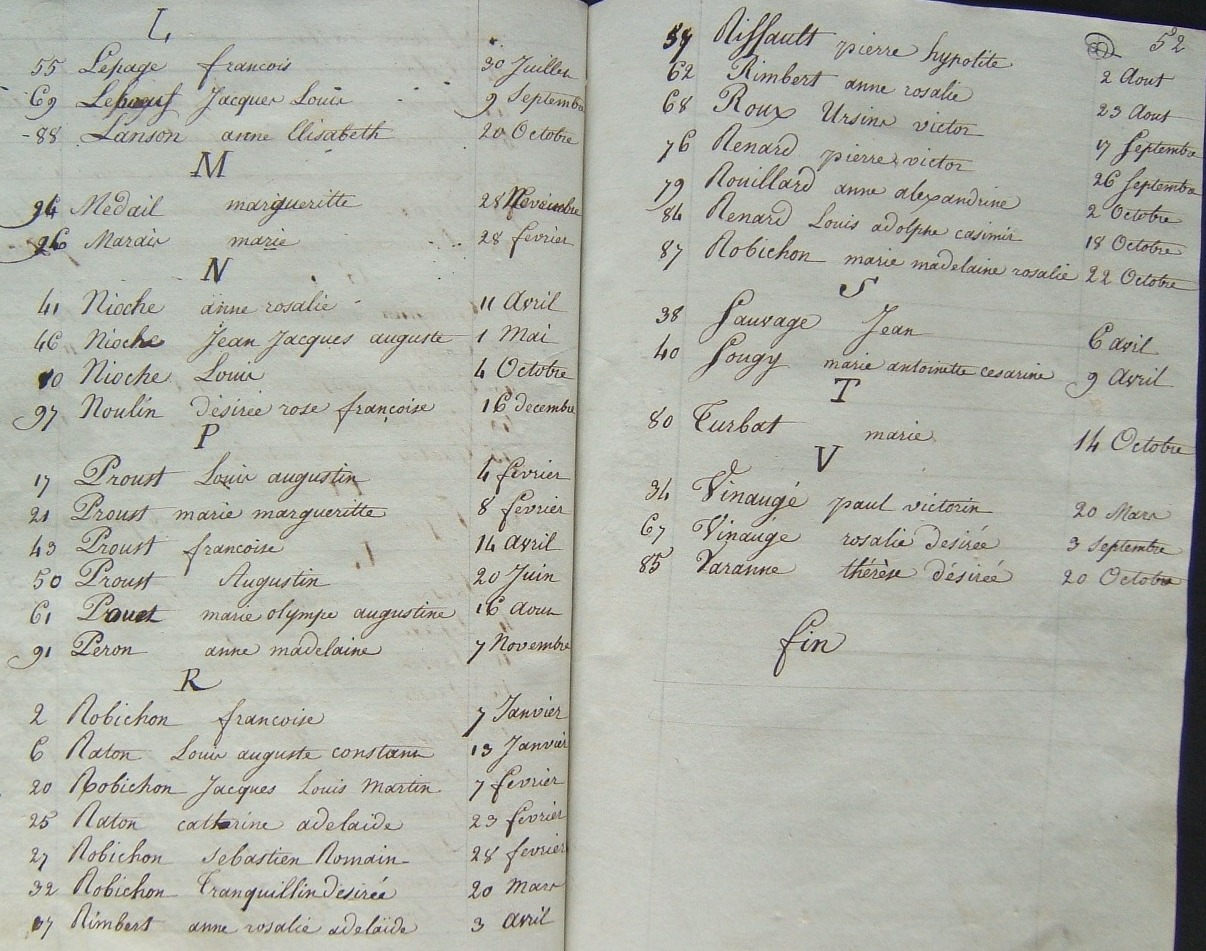 L
55 Lepage francois 30 Juillet
69 Jacques Louis 9 Septembre
88 Lanson anne Elisabeth 20 Octobre
M
94 Medail margueritte 28 Novembre
26 Marais marie 28 fevrier
N
41 Nioche anne rosalie 11 Avril
46 Nioche Jean Jacques auguste 1 Mai
Nioche Louis 4 Octobre
97 Noulin désirée rose françoise 16 decembre
P
17 Proust Louis augustin 4 fevrier
21 Proust marie margueritte 8 fevrier
43 Proust francoise 14 avril
50 Proust Augustin 20 Juin
61 marie olympe augustine 16 Aout
91 Peron anne madelaine 7 Novembre
R
2 Robichon francoise 7 Janvier
6 Raton Louis auguste constant 13 Janvier
20 Robichon Jacques Louis Martin 7 fevrier
25 Raton catherine adelaide 23 fevrier
27 Robichon Sebastien Romain 28 fevrier
32 Robichon Tranquillin désirée 20 Mars
37 Rimbert anne rosalie adelaïde 3 avril
52
59 Riffault pierre hypolite 2 Aout
62 Rimbert anne rosalie 23 Aout
68 Roux Ursine victor 17 Septembre
76 Renard pierre victor 26 Septembre
79 Rouillard anne alexandrine 2 Octobre
84 Renard Louis adolphe casimir 18 Octobre
87 Robichon marie madelaine rosalie 22 Octobre
S
38 Sauvage Jean 6 avil
40 Sougy marie antoinette cesarine 9 Avril
T
80 Turbat marie 14 Octobre
V
34 Vinaugé paul victorin 20 Mars
67 Vinaugé rosalie desirée 3 Septembre
85 Varanne thérèse désirée 20 Octobre
fin